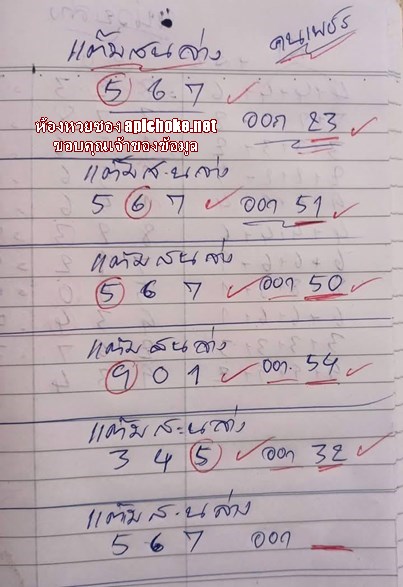 แต้มสนล่าง คนเพชร
5 6 7
ออก 23
ห้องหวยซอง apichoke.net
ขอบคุณเจ้าของข้อมูล
แต้มสนล่าง
5 6 7 ออก 51
แต้มสนล่าง
5 6 7 ออก 50
แต้มสนล่าง
9 0 1 ออก 54
แต้มสนล่าง
3 4 5 ออก 32
แต้มสนล่าง
5 6 7 ออก